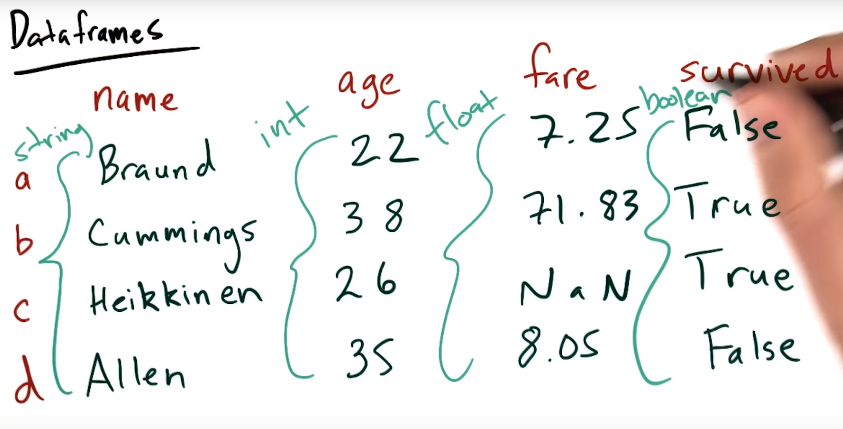 Dataframes
name age fare survived
string int float boolean
a Braund 22 7.25 False
b Cummings 38 71.83 True
c Heikkinen 26 NaN True
d Allen 35 8.05 False